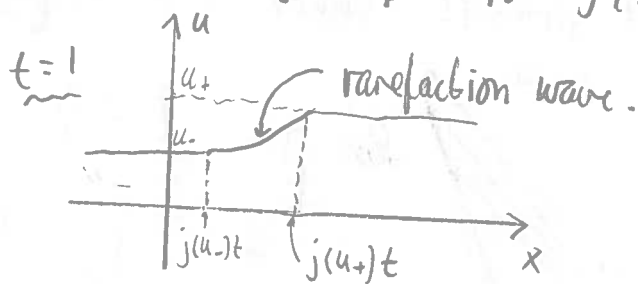 u
t=1
u₊
rarefaction wave.
u₋
j(u₋)t
j(u₊)t
x